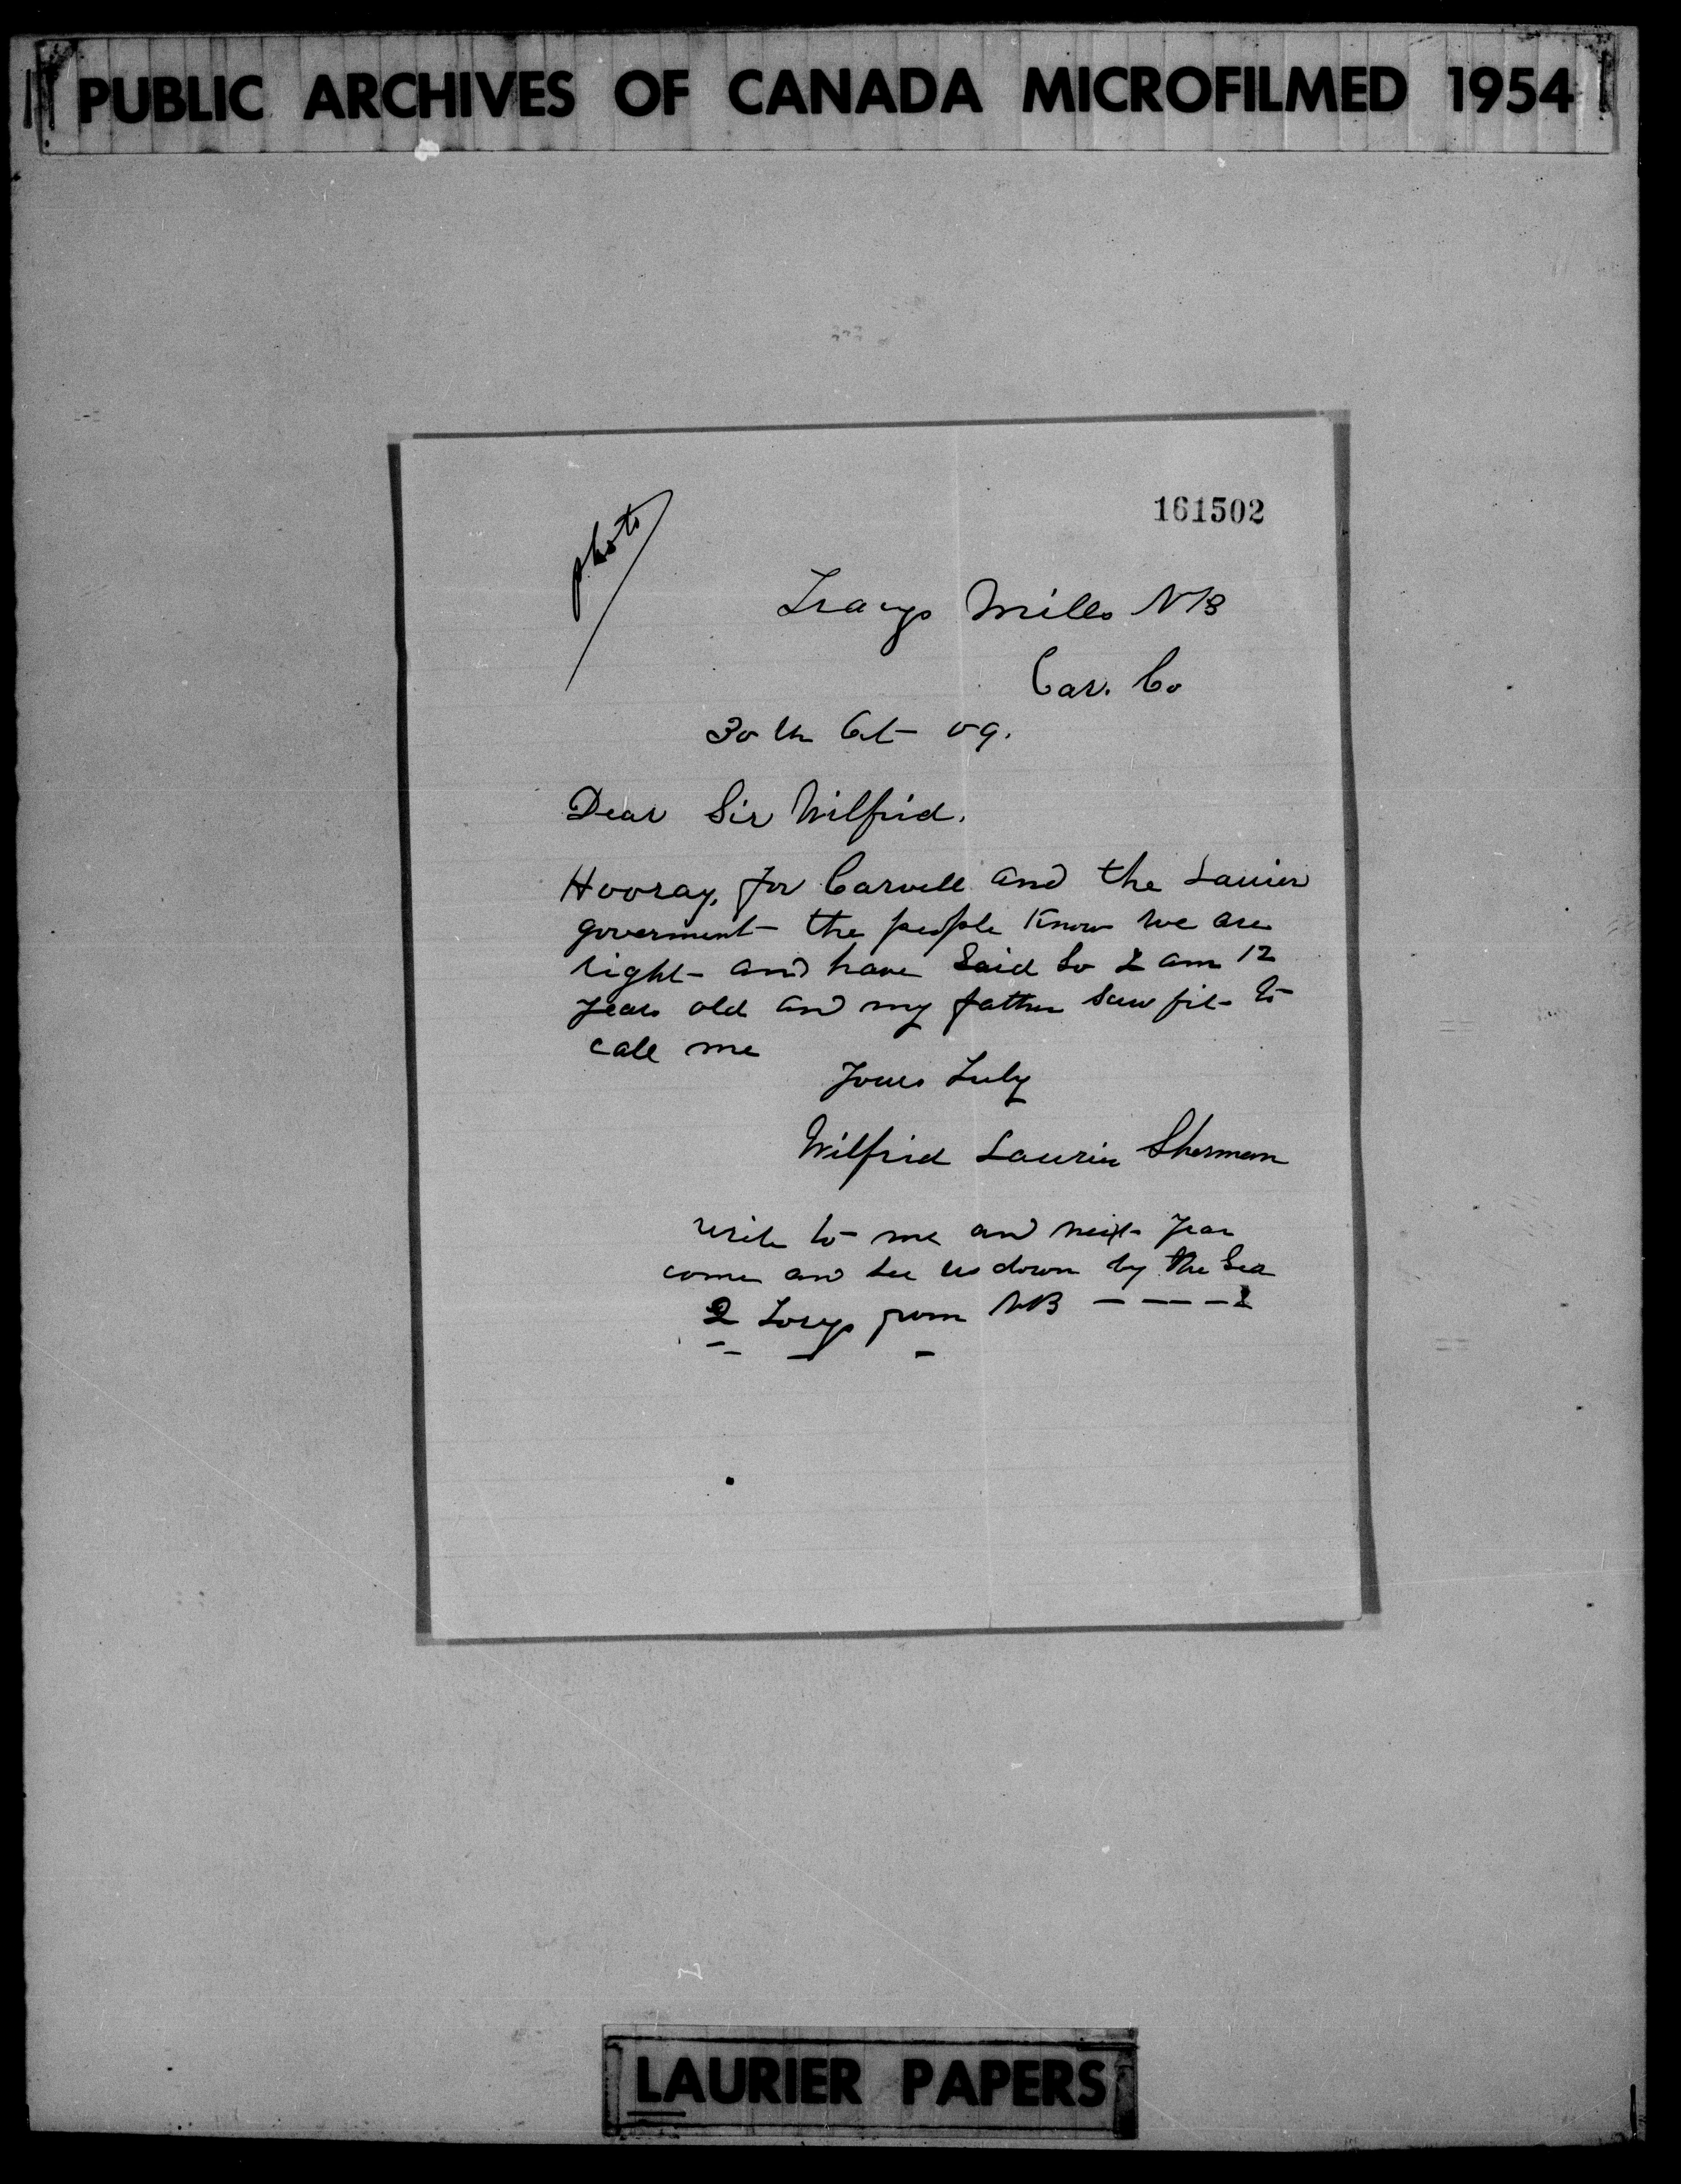 PUBLIC ARCHIVES OF CANADA MICROFILMED 1954
161502
photo
Tracys Mills NB
Car. Co
30th Oct 09.
Dear Sir Wilfrid.
Hooray, for Carvell and the Laurier
goverment the people Know we are
right and have Said So I am 12
years old and my father saw fit to
call me
Yours Truly
Wilfrid Laurier Sherman
write to me and next year
come and see us down by the Sea
2 Torys from NB
LAURIER PAPERS